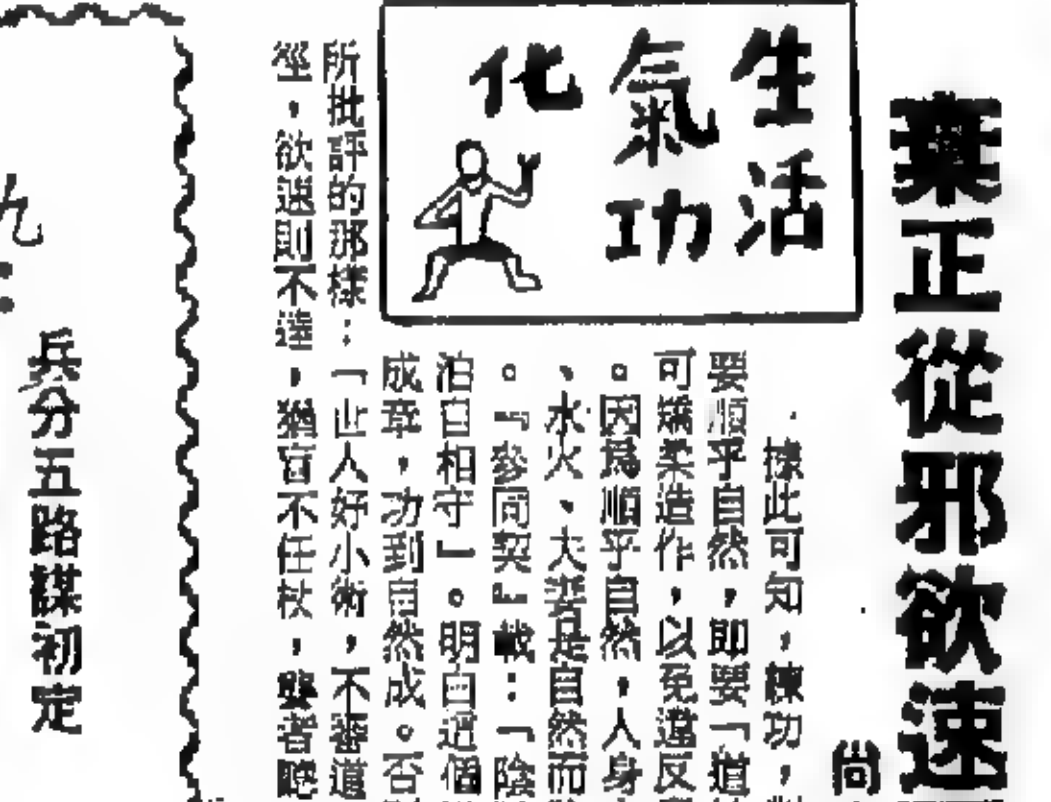 棄正從邪欲速
尚
生活
氣功
化
據此可知，練功，
要順乎自然，即要「道
可矯柔造作，以免違反
。因為順乎自然，人身
、水火、大藥是自然而
。『參同契』載：「陰
泊自相守」。明白這個
成章，功到自然成。否則
所批評的那樣：「世人好小術，不審道
徑，欲速則不達，猶盲不任杖，聾者聽
九：
兵分五路謀初定